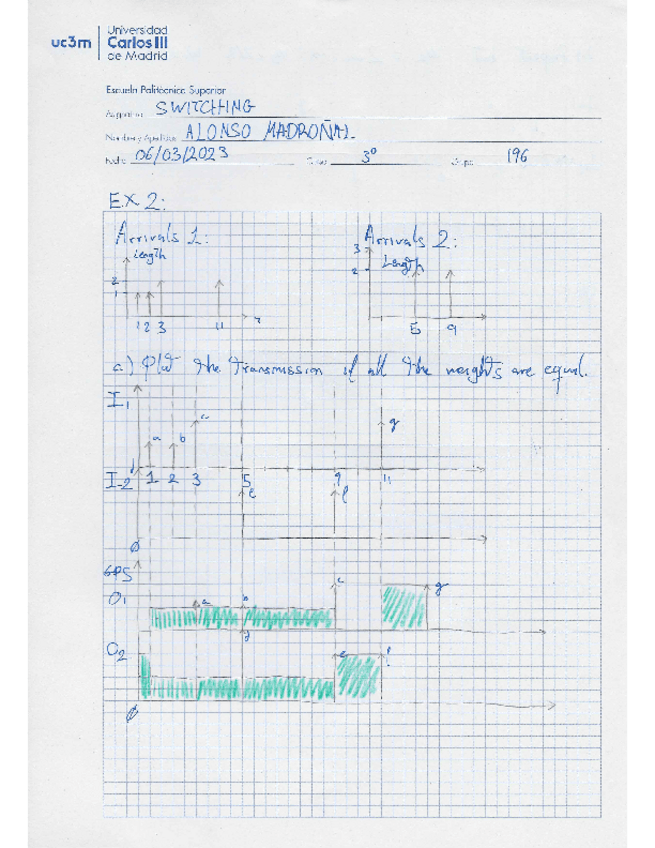 uc3m
Universidad
Carlos III
de Madrid
Escuela Politécnica Superior
Asignatura SWITCHING
Nombre y Apellidos ALONSO MADROÑAL
Fecha 06/03/2023 Curso 3º Grupo 196
EX 2:
Arrivals 1: Arrivals 2:
Length 3
2 Length
1 2
1 2 3 11 5 9
a) Plot the transmission if all the weights are equal.
I1
a b c g
I2 1 2 3 5 9 11
e f
Ø
GPS
O1 a b c g
d
O2 e f
Ø